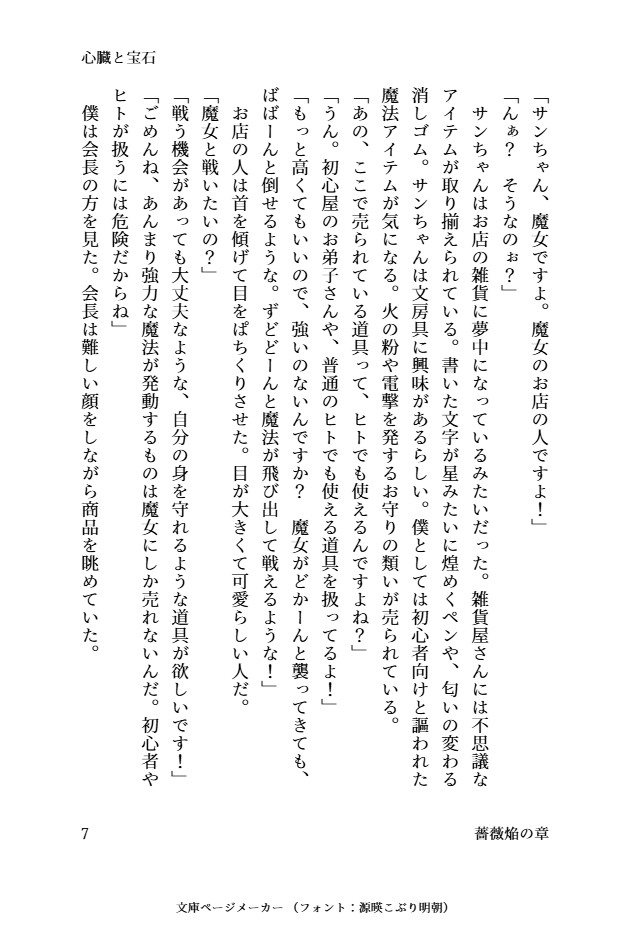 心臓と宝石
「サンちゃん、魔女ですよ。魔女のお店の人ですよ！」
「んぁ？　そうなのぉ？」
　サンちゃんはお店の雑貨に夢中になっているみたいだった。雑貨屋さんには不思議な
アイテムが取り揃えられている。書いた文字が星みたいに煌めくペンや、匂いの変わる
消しゴム。サンちゃんは文房具に興味があるらしい。僕としては初心者向けと謳われた
魔法アイテムが気になる。火の粉や電撃を発するお守りの類いが売られている。
「あの、ここで売られている道具って、ヒトでも使えるんですよね？」
「うん。初心屋のお弟子さんや、普通のヒトでも使える道具を扱ってるよ！」
「もっと高くてもいいので、強いのないんですか？　魔女がどかーんと襲ってきても、
ばばーんと倒せるような。ずどどーんと魔法が飛び出して戦えるような！」
　お店の人は首を傾げて目をぱちくりさせた。目が大きくて可愛らしい人だ。
「魔女と戦いたいの？」
「戦う機会があっても大丈夫なような、自分の身を守れるような道具が欲しいです！」
「ごめんね、あんまり強力な魔法が発動するものは魔女にしか売れないんだ。初心者や
ヒトが扱うには危険だからね」
　僕は会長の方を見た。会長は難しい顔をしながら商品を眺めていた。
7
薔薇焔の章
文庫ページメーカー（フォント：源暎こぶり明朝）